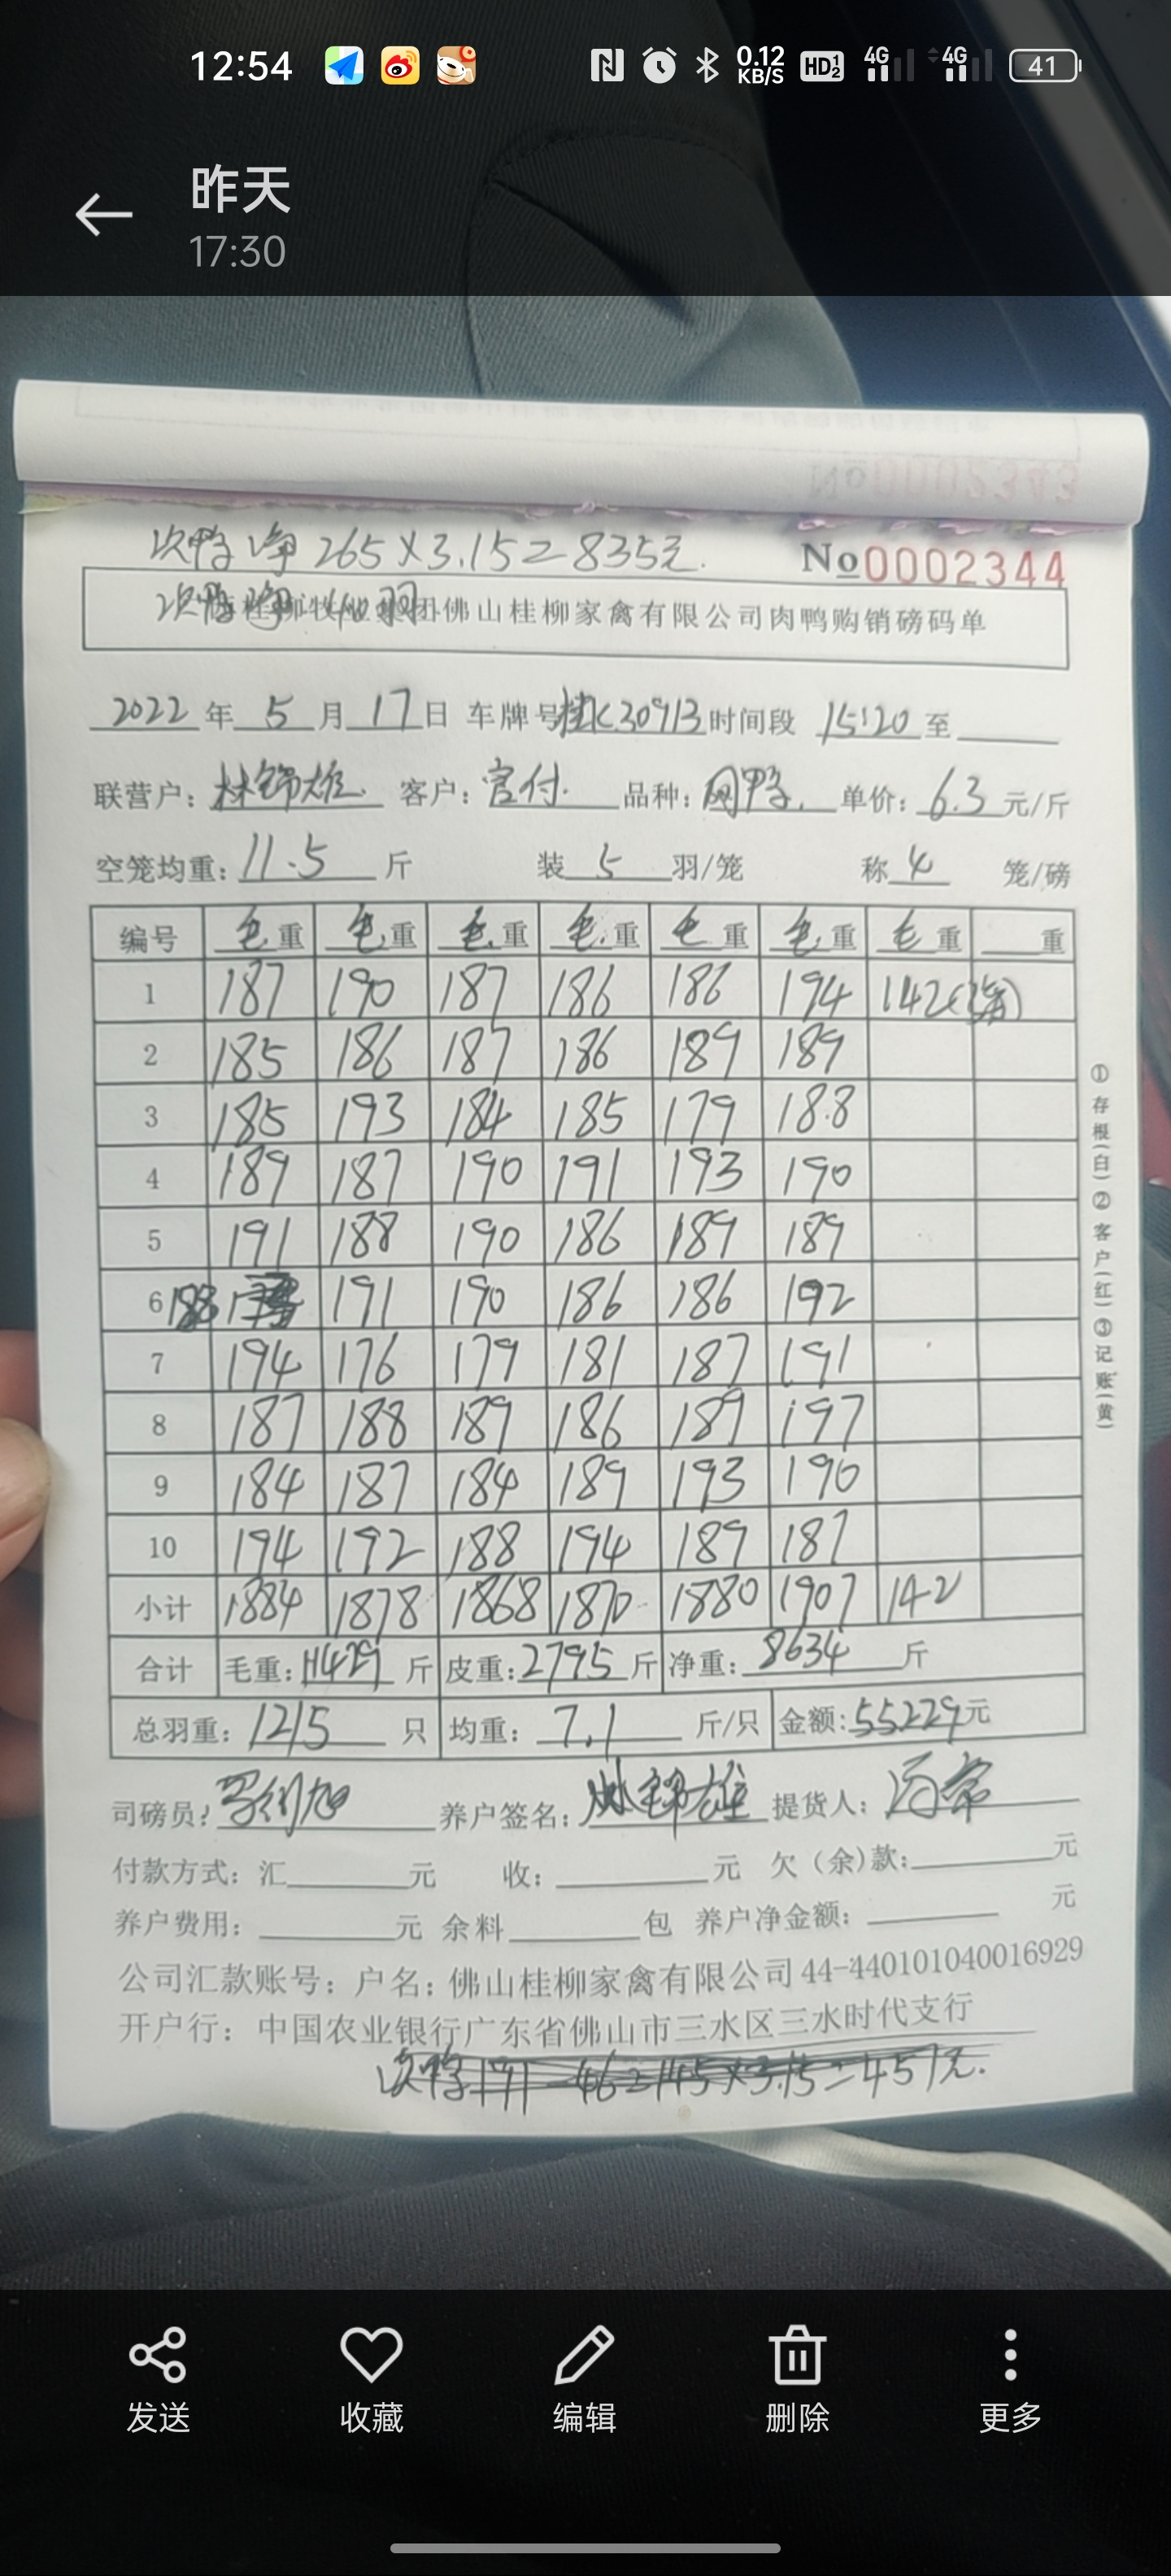 12:54 0.12 KB/S HD 1 2 4G 4G 41
昨天
17:30
No0002343
次鸭净265×3.15=835元.
No0002344
牧业集团佛山桂柳家禽有限公司肉鸭购销磅码单
2022年5月17日 车牌号桂K30913时间段 15:20至
联营户:林锦雄 客户:官付. 品种: 单价:6.3元/斤
空笼均重:11.5斤 装5羽/笼 称4笼/磅
编号 毛重 毛重 毛重 毛重 毛重 毛重 毛重 重
1 187 190 187 186 186 194 142
2 185 186 187 186 189 189
3 185 193 184 185 179 188
4 189 187 190 191 193 190
5 191 188 190 186 189 189
6 188 191 190 186 186 192
7 194 176 179 181 187 191
8 187 188 189 186 189 197
9 184 187 184 189 193 190
10 194 192 188 194 189 187
小计 1884 1878 1868 1870 1880 1907 142
合计 毛重:11429斤 皮重:2795斤 净重:8634斤
总羽重:1215只 均重:7.1斤/只 金额:55229元
司磅员: 养户签名:林锦雄 提货人:
付款方式:汇 元 收: 元 欠(余)款: 元
养户费用: 元 余料 包 养户净金额: 元
公司汇款账号:户名:佛山桂柳家禽有限公司 44-440101040016929
开户行:中国农业银行广东省佛山市三水区三水时代支行
次鸭191-46=145×3.15=457元.
①存根(白)②客户(红)③记账(黄)
发送 收藏 编辑 删除 更多